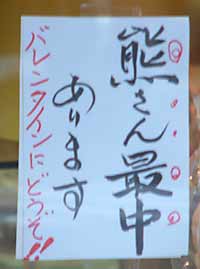 熊さん最中
あります
バレンタインにどうぞ!!